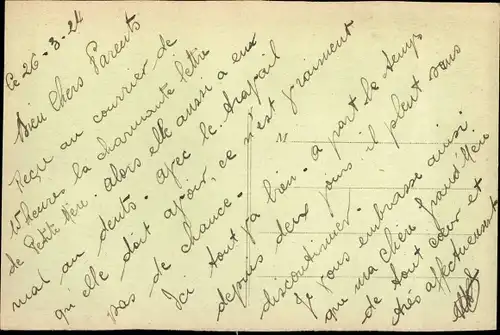 Le 26-3-24
Bien Chers Parents
Reçu au courrier de
11 heures la charmante lettre
de Petite Mère. Alors elle aussi a eu
mal au dents. avec le travail
qu'elle doit avoir, ce n'est vraiment
pas de chance.
Ici tout va bien. à part le temps
depuis deux jours il pleut sans
discontinuer.
Je vous embrasse ainsi
que ma chère Grand'Mère
de tout cœur et
très affectueusement